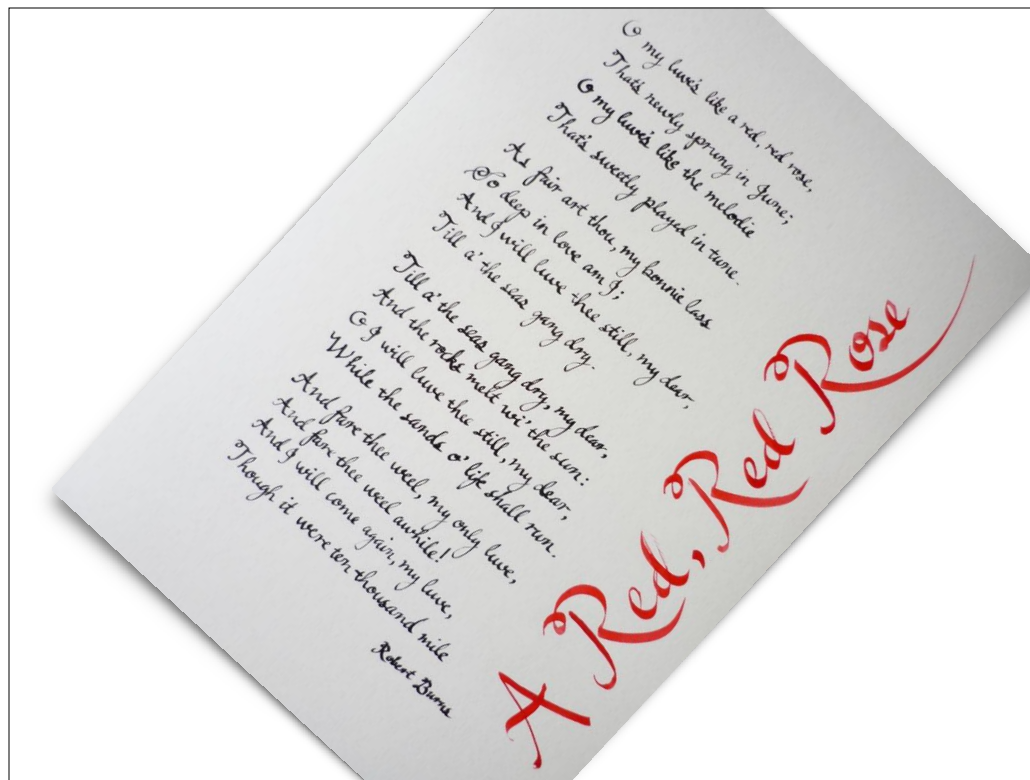 O my luve's like a red, red rose,
That's newly sprung in June;
O my luve's like the melodie
That's sweetly play'd in tune.
As fair art thou, my bonnie lass
So deep in love am I;
And I will luve thee still, my dear,
Till a' the seas gang dry.
Till a' the seas gang dry, my dear,
And the rocks melt wi' the sun:
O I will luve thee still, my dear,
While the sands o' life shall run.
And fare thee weel, my only luve,
And fare thee weel awhile!
And I will come again, my luve,
Though it were ten thousand mile
Robert Burns
A Red, Red Rose